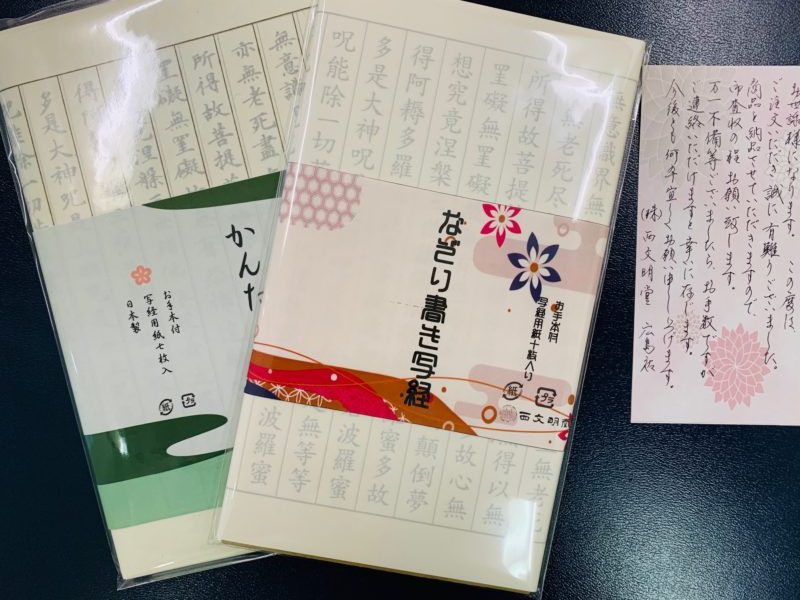 無意識
亦無老死盡
所得故菩提
罣礙無罣礙故
多是大神呪
かんた
お手本付
写経用紙七枚入
日本製
紙
プラ
無意識界無
無老死尽
所得故菩提
罣礙無罣礙
想究竟涅槃
得阿耨多羅
多是大神呪
呪能除一切苦
なぞり書き写経
お手本付
写経用紙十枚入り
紙
プラ
西文明堂
無老死
得以無
故心無
顛倒夢
蜜多故
波羅蜜
無等等
波羅蜜
お世話様になります。この度は、
ご注文いただき誠に有難うございました。
商品を納品させていただきますので、
御査収の程お願い致します。
万一不備等ございましたら、お手数ですが
ご連絡いただけますと幸いに存じます。
今後とも何卒宜しくお願い申し上げます。
(株)西文明堂